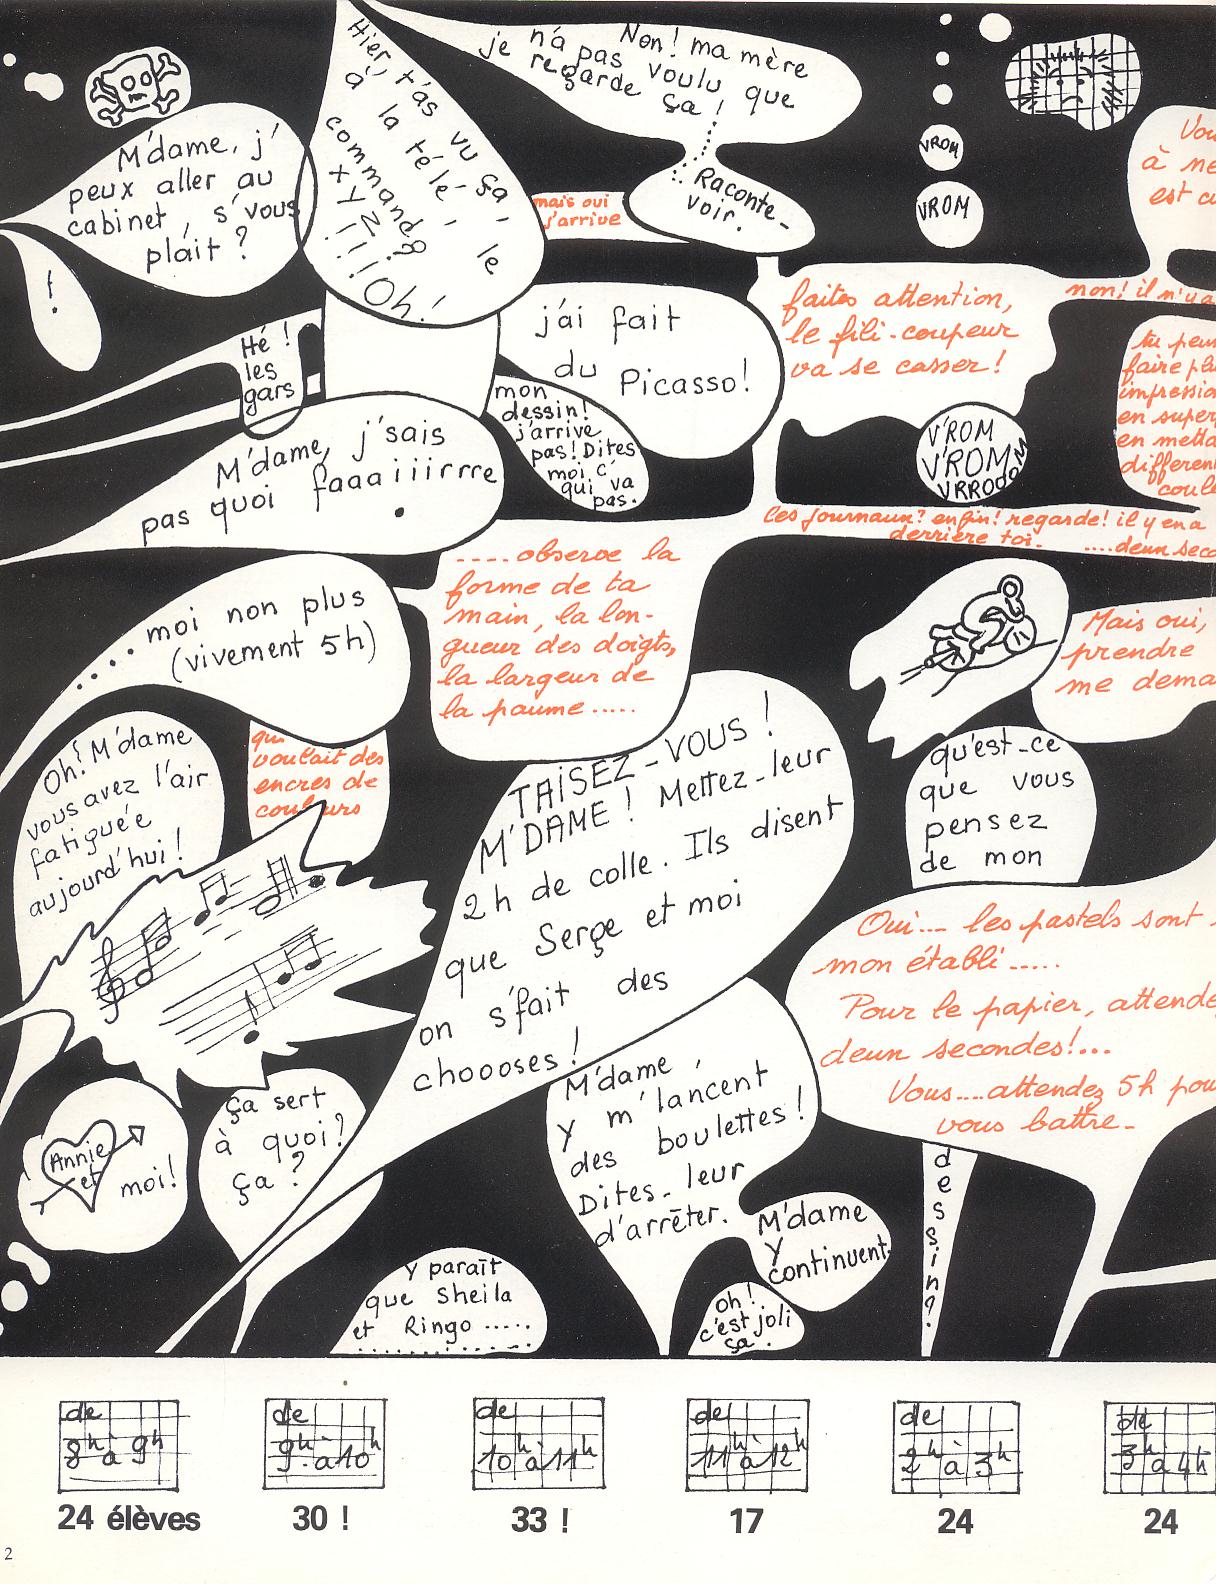 Hier, t'as vu ça,
à la télé, le
commando
XYZ!!!
Oh!
Non! ma mère
je n'a pas voulu que
regarde ça!
Raconte-
voir.
mais oui
j'arrive
VROM
VROM
M'dame, j'
peux aller au
cabinet, s'vous
plaît ?
!
Hé !
les
gars
j'ai fait
du Picasso!
mon
dessin!
j'arrive
pas! Dites
moi c'
qui va
pas.
faites attention,
le fili-coupeur
va se casser !
non! il n'y a
V'ROM
V'ROM
M'dame, j'sais
pas quoi faaaiiiirrre
.
les journaux? enfin! regarde! il y en a
derrière toi.
....deux seco
.... observe la
forme de ta
main, la lon-
gueur des doigts,
la largeur de
la paume .....
.....moi non plus
(vivement 5h)
Mais oui,
prendre
me dema
Oh! M'dame
vous avez l'air
fatiguée
aujourd'hui !
voulait des
encres de
couleurs
TAISEZ-VOUS !
M'DAME ! Mettez-leur
2h de colle. Ils disent
que Serge et moi
on s'fait des
choooses !
qu'est-ce
que vous
pensez
de mon
dessin?
Oui.... les pastels sont
mon établi .....
Pour le papier, attendez
deux secondes!...
Vous.... attendez 5h pour
vous battre-
Annie
et moi!
ça sert
à quoi?
ça ?
M'dame,
y m'lancent
des boulettes !
Dites-leur
d'arrêter.
M'dame
y
continuent.
oh!
c'est joli
ça.
y paraît
que Sheila
et Ringo .....
de
8h à 9h
24 élèves
de
9h à 10h
30 !
de
10h à 11h
33 !
de
11h à 12h
17
de
2h à 3h
24
de
3h à 4h
24
2